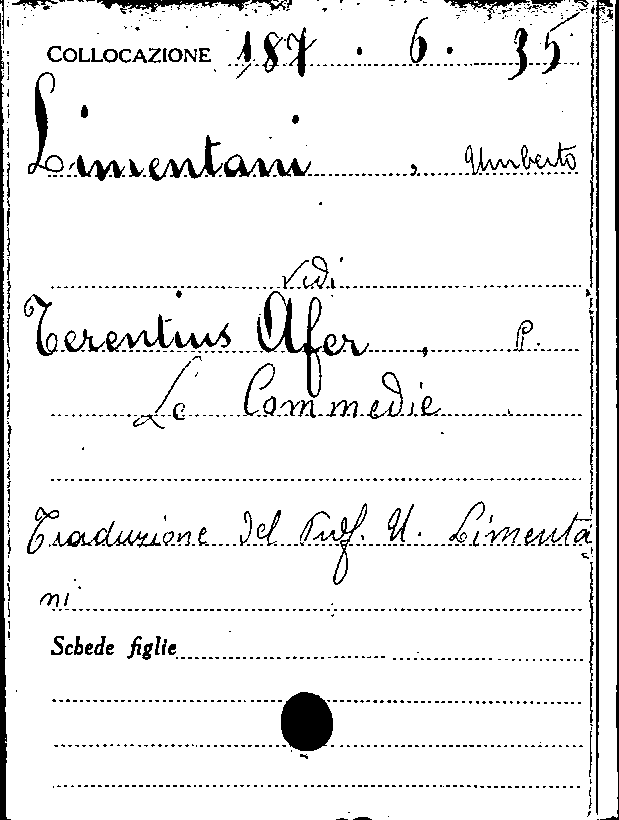 COLLOCAZIONE 187 . 6 . 35
Limentani , Umberto
Vedi
Terentius Afer , P.
Le Commedie
Traduzione del Prof. U. Limenta
ni
Schede figlie